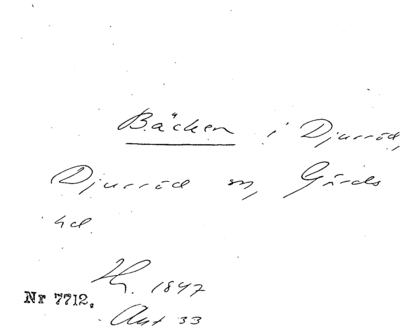 Bäcken i Djurröd,
Djurröd sn, Gärds
hd.
1847
Nr 7712.
33